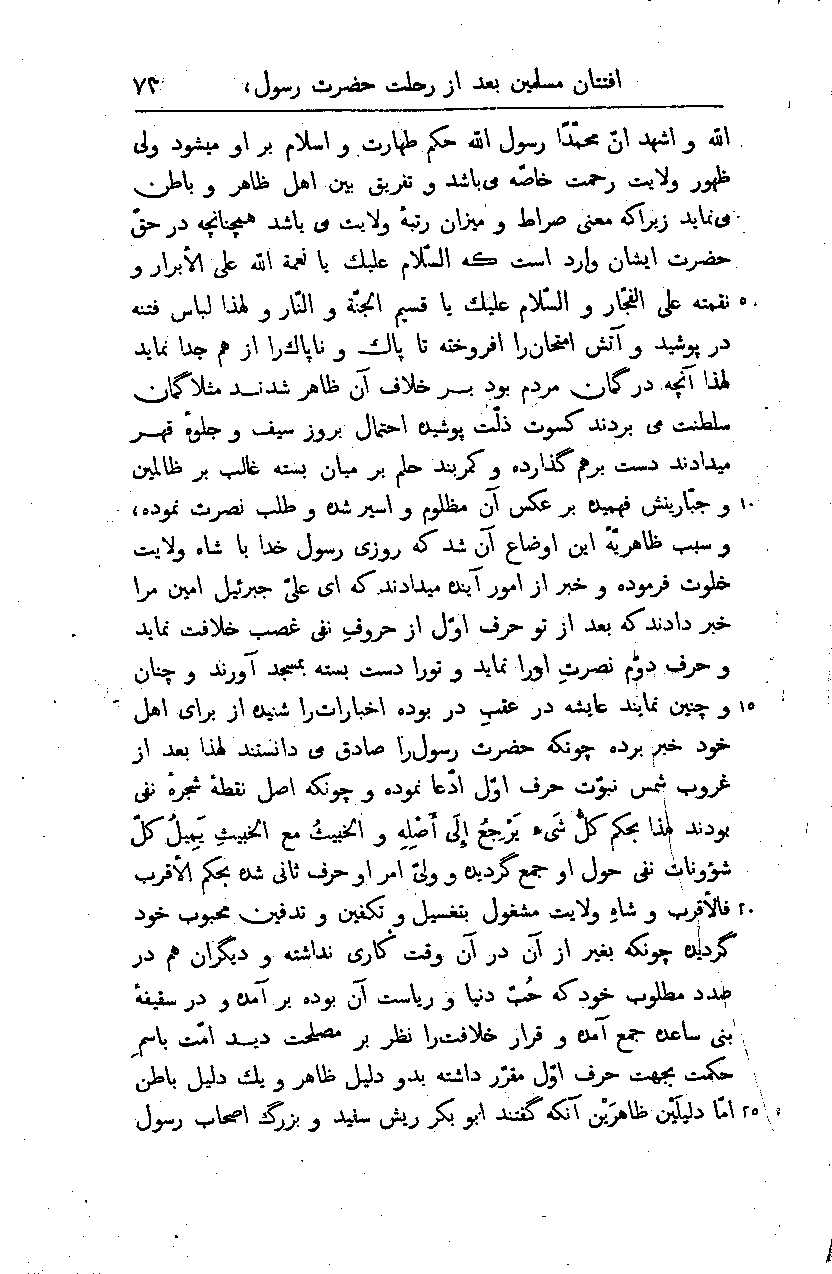 افتتان مسلمین بعد از رحلت حضرت رسول، ۷۳
الله و اشهد انّ محمّداً رسول الله حکم طهارت و اسلام بر او میشود ولی
ظهور ولایت رحمت خاصّه می‌باشد و تفریق بین اهل ظاهر و باطن
می‌نماید زیراکه معنی صراط و میزان رتبهٔ ولایت می باشد همچنانچه در حقّ
حضرت ایشان وارد است که السّلام علیك یا نعمة الله علی الأبرار و
۵ نقمته علی الفجّار و السّلام علیك یا قسیم الجنّة و النّار و لهذا لباس فتنه
در پوشید و آتش امتحان‌را افروخته تا پاك و ناپاك‌را از هم جدا نماید
لهذا آنچه در گمان مردم بود بر خلاف آن ظاهر شدند مثلا گمان
سلطنت می بردند کسوت ذلّت پوشیده احتمال بروز سیف و جلوهٔ قهر
میدادند دست برهم گذارده و کمربند حلم بر میان بسته غالب بر ظالمین
۱۰ و جبّارینش فهمیده بر عکس آن مظلوم و اسیر شده و طلب نصرت نموده،
و سبب ظاهریّهٔ این اوضاع آن شد که روزی رسول خدا با شاه ولایت
خلوت فرموده و خبر از امور آینده میدادند که ای علیّ جبرئیل امین مرا
خبر دادند که بعد از تو حرف اوّل از حروفِ نفی غصب خلافت نماید
و حرف دوّم نصرتِ اورا نماید و تورا دست بسته بمسجد آورند و چنان
۱۵ و چنین نمایند عایشه در عقبِ در بوده اخبارات‌را شنیده از برای اهل
خود خبر برده چونکه حضرت رسول‌را صادق می دانستند لهذا بعد از
غروب شمس نبوّت حرف اوّل ادّعا نموده و چونکه اصل نقطهٔ شجرهٔ نفی
بودند لهذا بحکم کلُّ شَیء یَرْجِعُ إِلَی أَصْلِهِ و الخبیثُ مع الخبیثِ یَمِیلُ کلّ
شؤونات نفی حول او جمع گردیده و ولیّ امر او حرف ثانی شده بحکم الأقرب
۲۰ فالأقرب و شاهِ ولایت مشغول بتغسیل و تکفین و تدفین محبوب خود
گردیده چونکه بغیر از آن در آن وقت کاری نداشته و دیگران هم در
صدد مطلوب خود که حُبّ دنیا و ریاست آن بوده بر آمده و در سقیفهٔ
بنی ساعده جمع آمده و قرار خلافت‌را نظر بر مصلحت دید امّت باسمِ
حکمت بجهت حرف اوّل مقرّر داشته بدو دلیل ظاهر و یك دلیل باطن
۲۵ امّا دلیلَیْن ظاهرَیْن آنکه گفتند ابو بکر ریش سفید و بزرگ اصحاب رسول